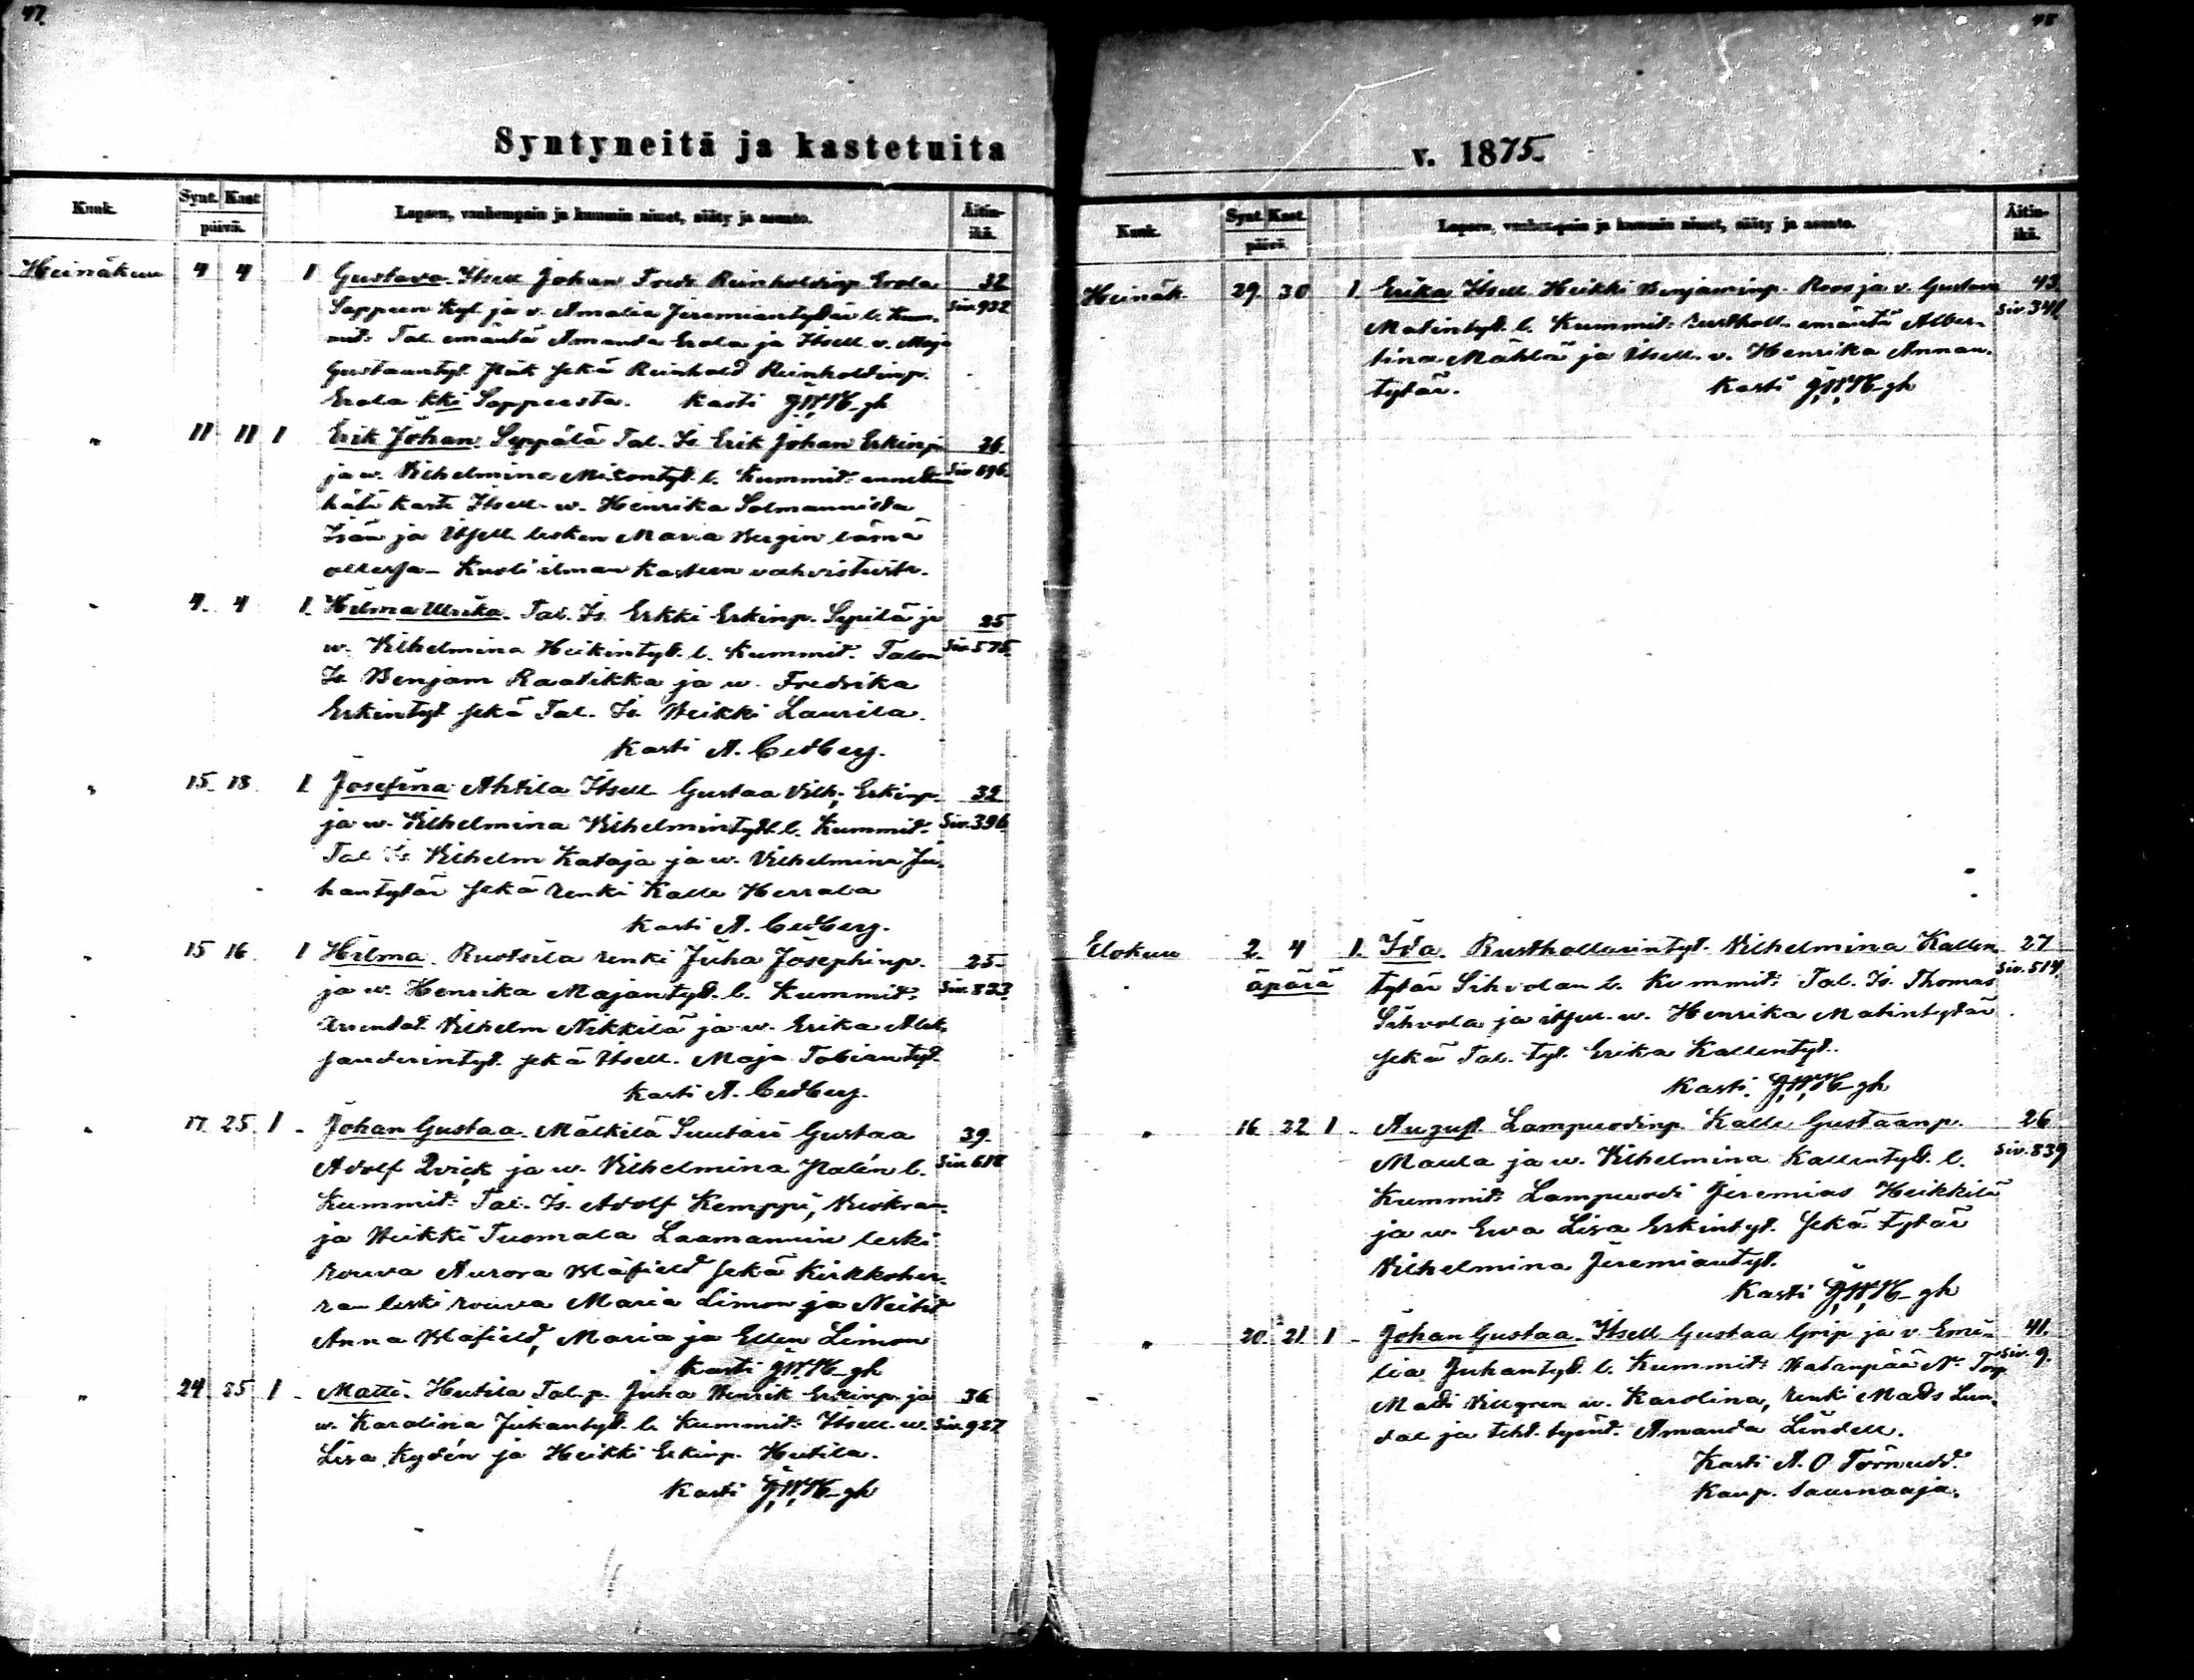 47
Syntyneitä ja kastetuita
Kuuk. Synt. Kast. päivä. Lapsen, vanhempain ja kummin nimet, sääty ja asunto. Äitin-ikä.
Heinäkuu 4 4 1 Gustava. Itsell Johan Fredr. Reinholdinp. Erola 32
Sappeen Kyl. ja v. Amalia Jeremiantytär l. Kum- Siv. 932
mit: Tal. emäntä Amanda Erola ja Itsell. v. Maja
Gustaantyt. sekä Reinhold Reinholdinp.
Erola Sappeesta. Kasti
" 11 11 1 Erik Johan. Seppälä Tal. Is. Erik Johan Erkinp. 26.
ja w. Vilhelmina Mikontyt. l. Kummit: Siv. 696.
hätä kaste Itsell. w. Henrika Solmannista
Isän ja Itsell. lesken Maria Bergin läsnä
ollessa - Kuoli ilman Kasteen vahvistusta.
" 4. 4 1. Hilma Ulrika. Tal. Is. Erkki Erkinp. Sepilä ja 25
w. Vilhelmina Heikintyt. l. Kummit: Talon Siv. 575
Is. Benjam Raatikka ja w. Fredrika
Erkintyt sekä Tal. Is. Heikki Laurila.
Kasti A. Cedberg.
" 15. 18. 1 Josefina Ahtila Itsell. Gustaa Vilh. Erkinp. 32
ja w. Vilhelmina Vilhelmintytt. l. Kummit: Siv. 396
Tal. Is. Vilhelm Kataja ja w. Vilhelmina Ju-
hantytär sekä renki Kalle Herrala
Kasti A. Cedberg.
" 15 16. 1 Hilma. Ruotsila renki Juha Josephinp. 25.
ja w. Henrika Majantyt. l. Kummit: Siv. 823
Arendat. Vilhelm Nikkilä ja w. Erika Alek-
sanderintyt. sekä Itsell. Maja Tobiantyt.
Kasti A. Cedberg.
" 17. 25. 1 - Johan Gustaa. Mälkilä Suutari Gustaa 39.
Adolf Qvick ja w. Vilhelmina l. Siv. 618
Kummit: Tal. Is. Adolf Kemppi,
ja Heikki Tuomala Laamannin leski
rouva Aurora Blåfield sekä Kirkkoher-
ran leski rouva Maria Limon ja Neitit
Anna Blåfield, Maria ja Ellen Limon
Kasti
" 24 25 1 - Matti. Hutila Tal. p. Juha Henrik Erkinp. ja 36
w. Karolina Juhantyt. l. Kummit: Itsell. w. Siv. 927
Lisa Rydén ja Heikki Erkinp. Hutila.
Kasti
v. 1875.
Kuuk. Synt. Kast. päivä. Lapsen, vanhempain ja kummin nimet, sääty ja asunto. Äitin-ikä.
Heinäk. 29. 30 1. Erika Itsell. Heikki Benjaminp. Roos ja v. Gustava 43.
Matintyt. l. Kummit: rustholl. emäntä Alber- Siv. 341
tina Mählä ja Itsell. v. Henrika Annan-
tytär. Kasti
Elokuu 2. 4 1. Ida. Rusthollarintyt. Vilhelmina Kallen- 27
äpärä tytär Sihvolan l. Kummit: Tal. Is. Thomas Siv. 514.
Sihvola ja itsell. w. Henrika Matintytär
sekä Tal. tyt. Erika Kallentyt.
Kasti.
" 16. 22 1 - August. Lampuodinp. Kalle Gustaanp. 26
Maula ja w. Vilhelmina Kallentyt. l. Siv. 839
Kummit: Lampuodi Jeremias Heikkilä
ja w. Ewa Lisa Erkintyt. sekä tytär
Vilhelmina Jeremiantyt.
Kasti
" 20. 21. 1 - Johan Gustaa. Itsell Gustaa Grip ja v. Emi- 41.
lia Juhantyt. l. Kummit: Hatanpään Torp. Siv. 9.
Mati Villgren w. Karolina, renki Mads Lun-
dal ja teht. työnt. Amanda Lindell.
Kasti A. O Törnudd.
Kaup. Saarnaaja.